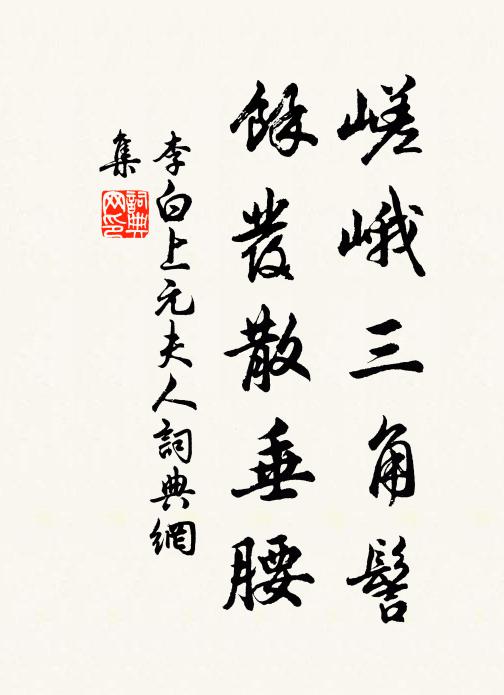 嵯峨三角髻
餘發散垂腰
李白上元夫人詞典網
集
詞典
网印